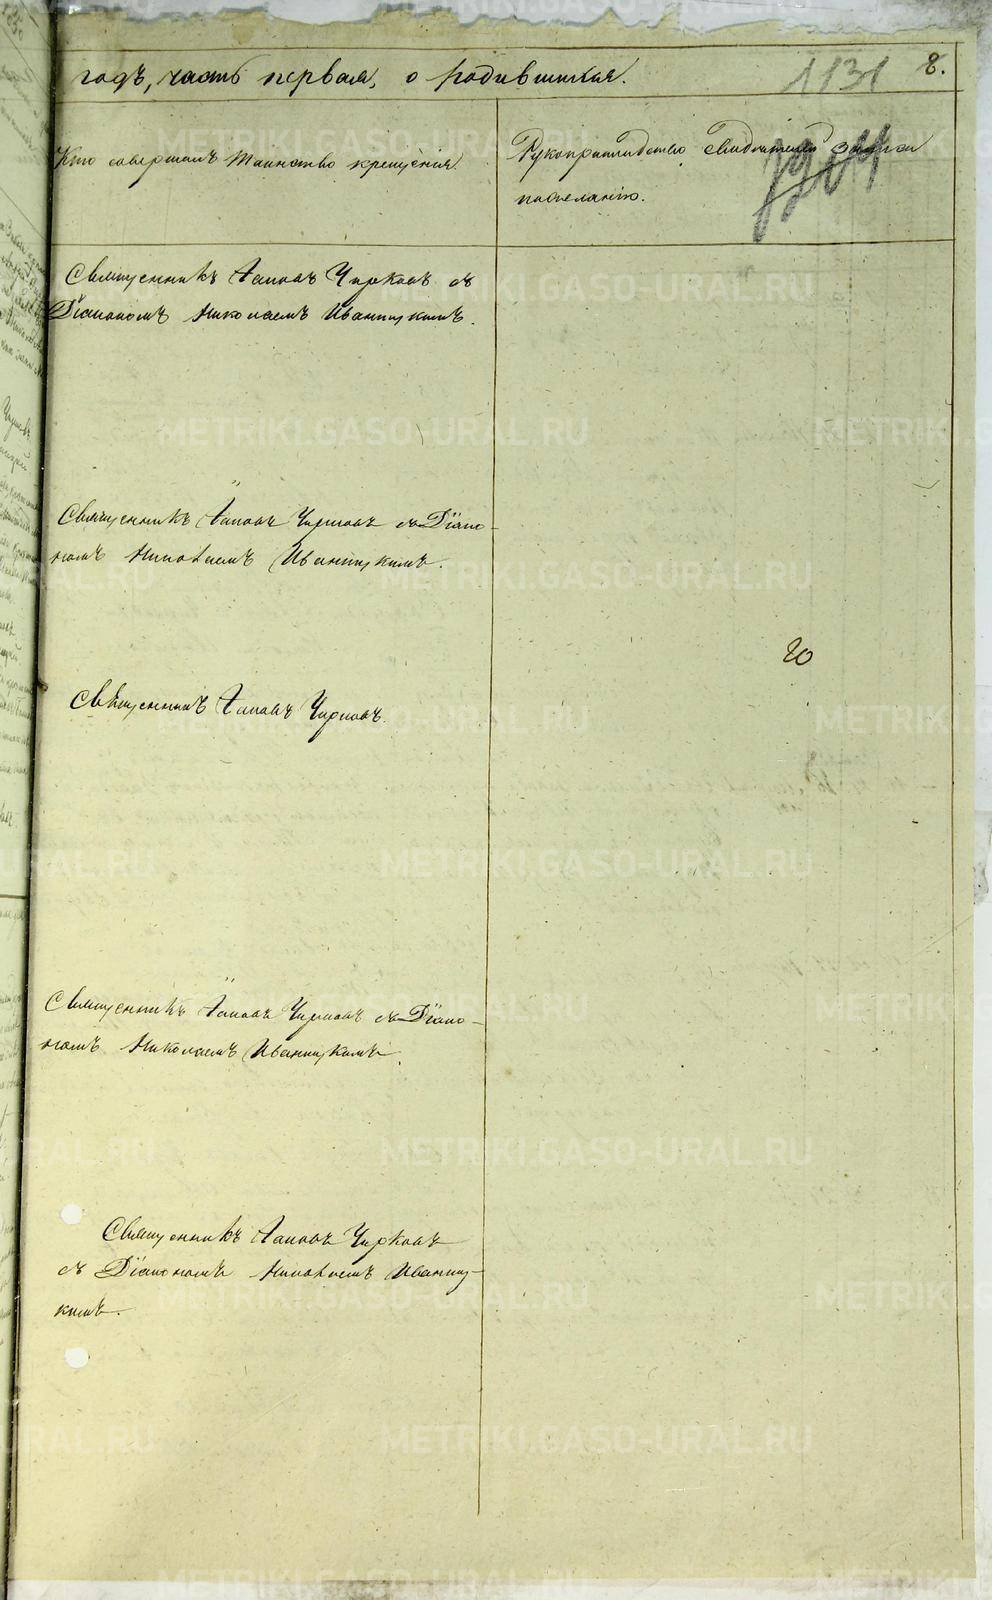 годъ, часть первая, о родившихся.
1131
8.
Кто совершалъ таинство крещенія.
Рукоприкладство свидѣтелей записи
по желанію.
Священникъ Іаковъ Чирковъ съ
Діакономъ Николаемъ Иваницкимъ.
Священникъ Іаковъ Чирковъ съ Діако-
номъ Николаемъ Иваницкимъ.
20
Священникъ Іаковъ Чирковъ.
Священникъ Іаковъ Чирковъ съ Діако-
номъ Николаемъ Иваницкимъ.
Священникъ Іаковъ Чирковъ
съ Діакономъ Николаемъ Иваниц-
кимъ.
METRIKI.GASO-URAL.RU